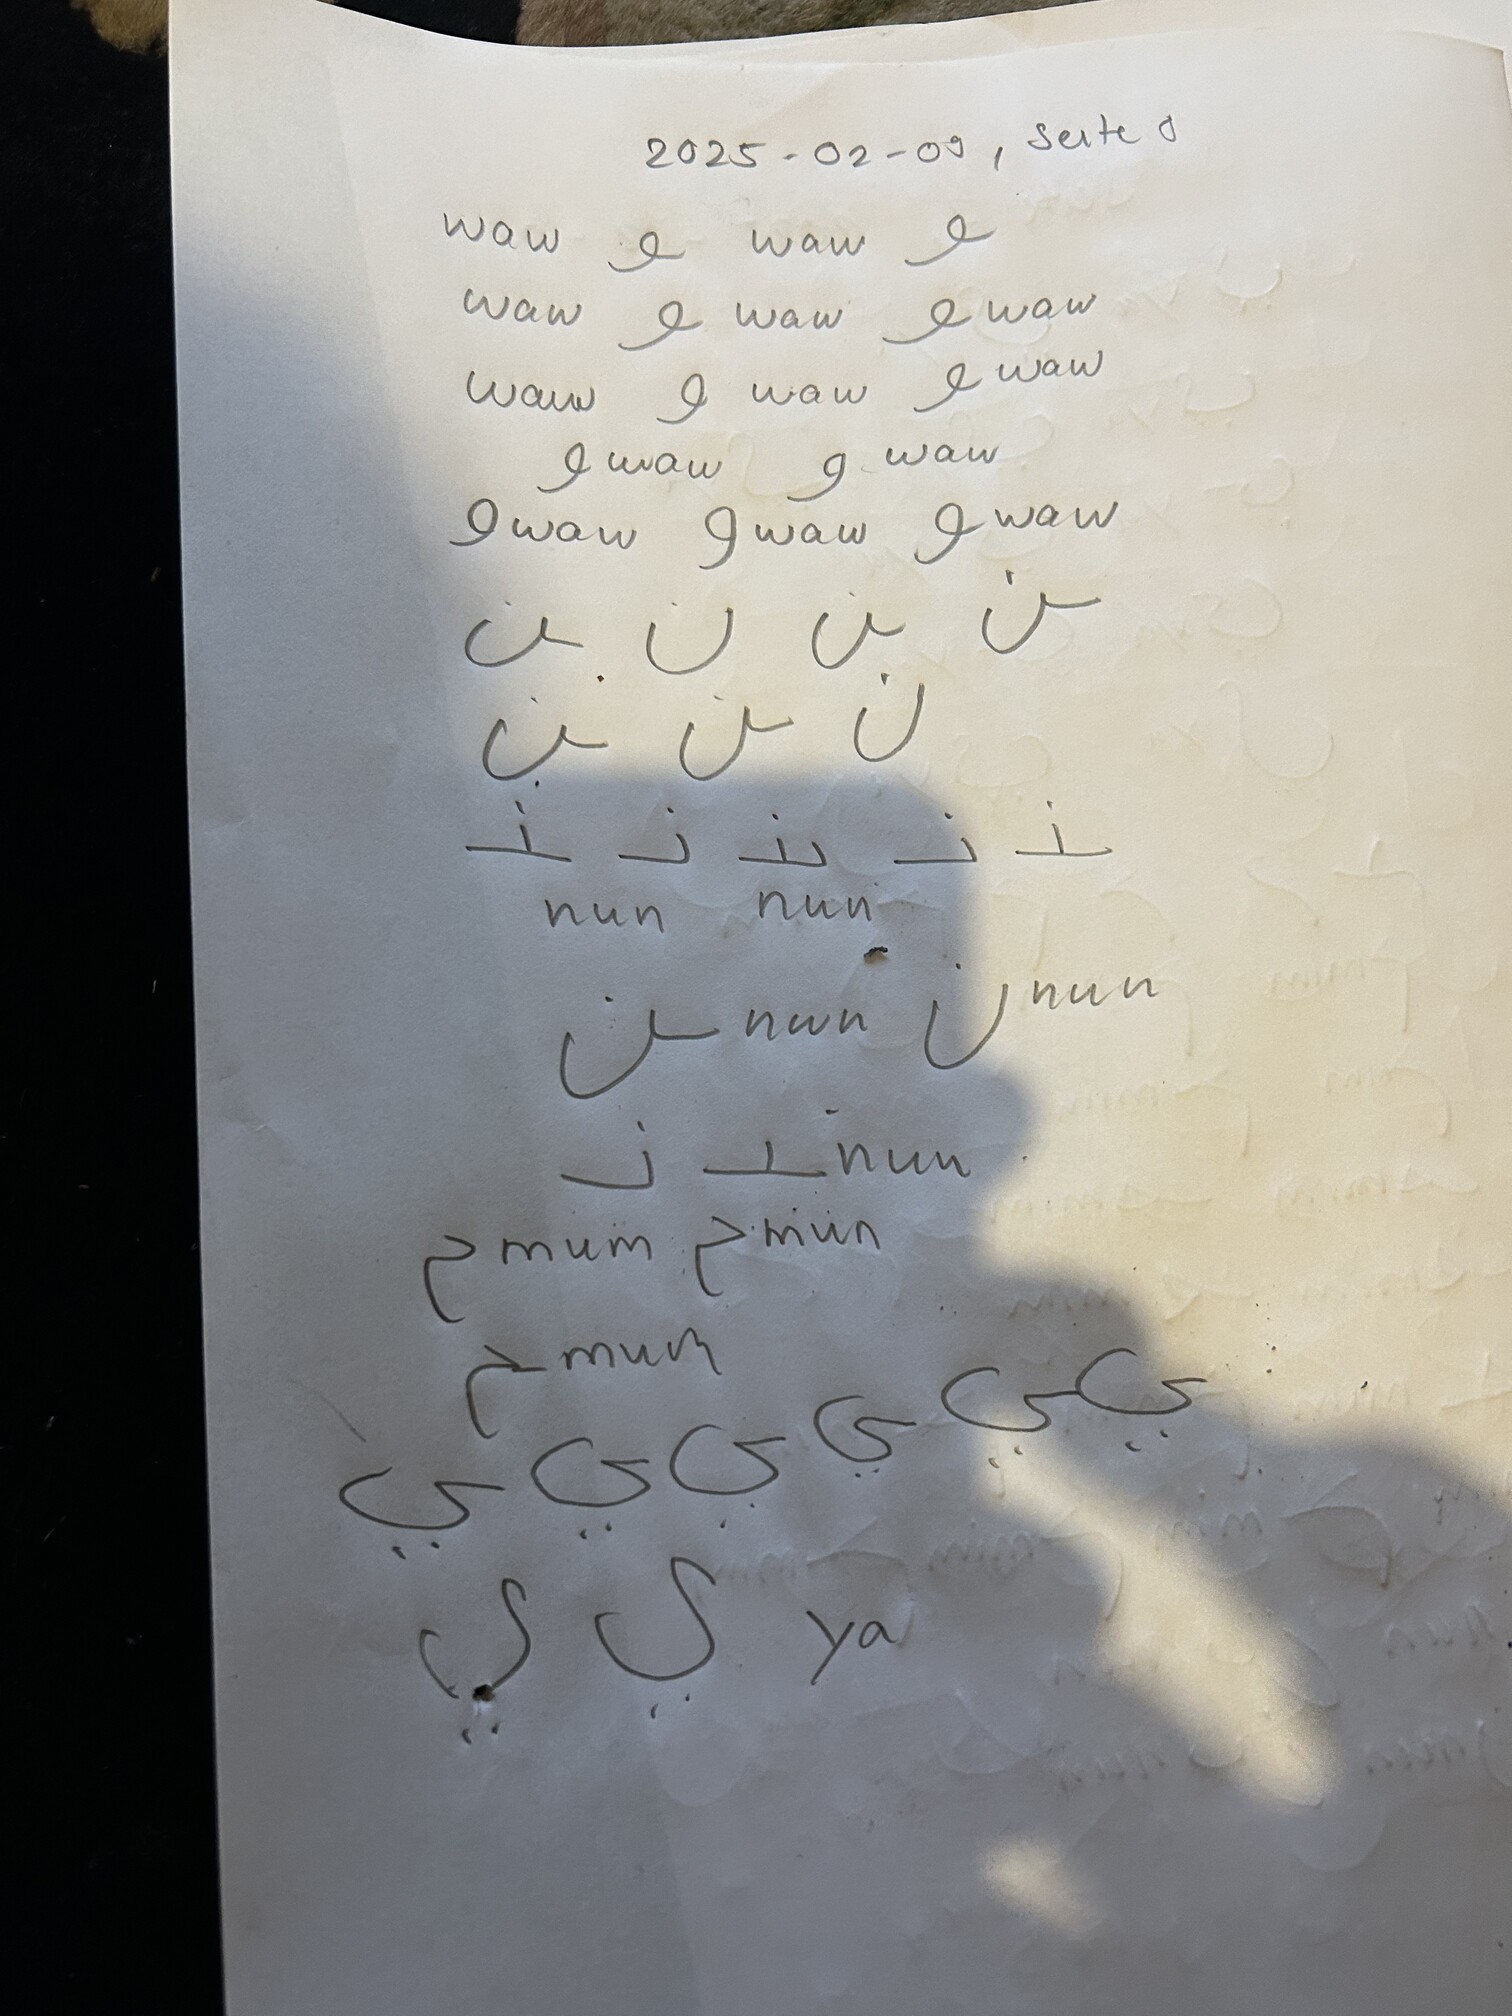 2025-02-09, Seite 0
waw ـو waw ـو
waw ـو waw ـو waw
waw و waw ـو waw
و waw و waw
و waw و waw ـو waw
ـن ن ـن ـن
ـن ـن ن
ـنـ نـ ـنـ نـ ـنـ
nun nun
ـن nun ن nun
نـ ـنـ nun
م mum م mun
ـم mum
ـي ـي ـي ـي ـي ـي
ي ي ya